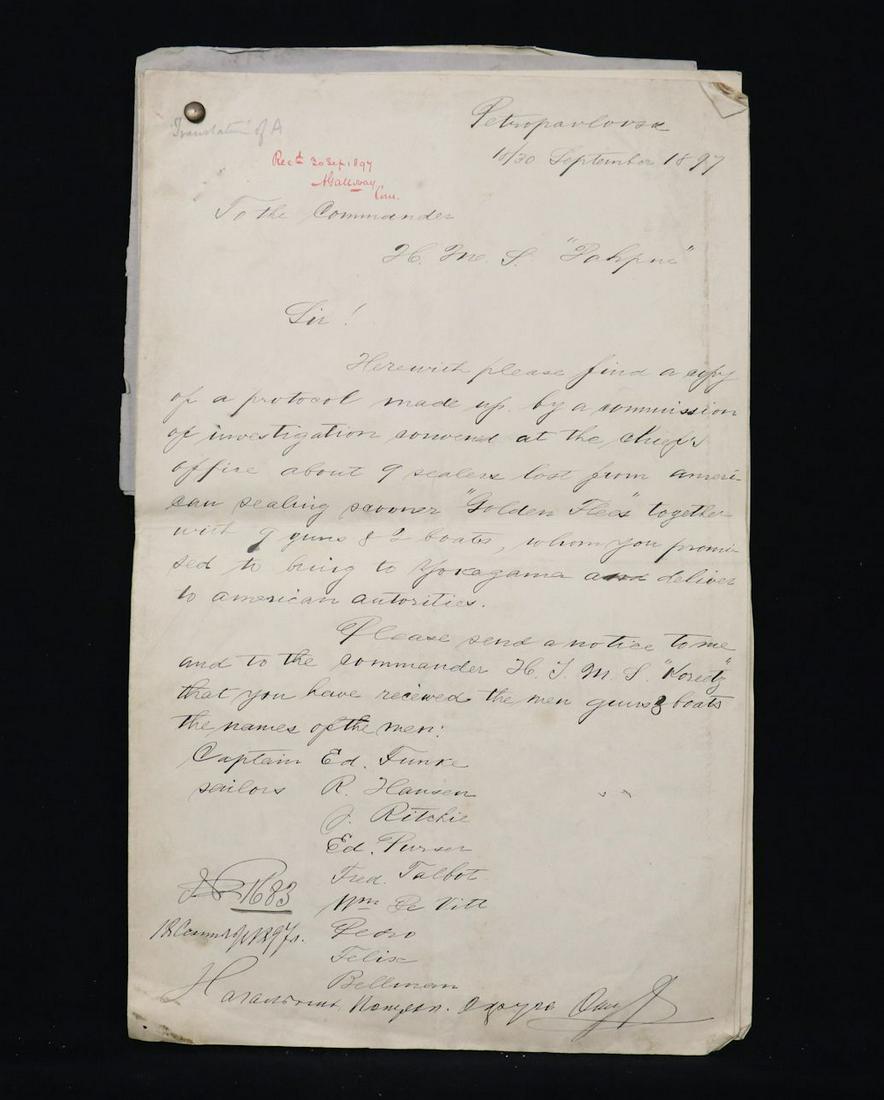 Translation of A
Petropavlovsk
18/30 September 1897
Recd 30 Sep 1897
Com.
To the Commander
H. M. S. "Dahpne"
Sir!
Herewith please find a copy
of a protocol made up by a commission
of investigation convened at the chief's
office about 9 sealers lost from ameri-
can sealing scooner "Golden Flees" together
with 9 guns & 2 boats, whom you promi-
sed to bring to Yokagama and deliver
to american autorities.
Please send a notice to me
and to the commander H. I. M. S. "Koreetz"
that you have recieved the men guns & boats
the names of the men:
Captain Ed. Funke
sailors R. Hansen
J. Ritchie
Ed. Purser
Fred. Talbot
Wm De Vitt
№ 1683
Pedro
Felix
Bellman